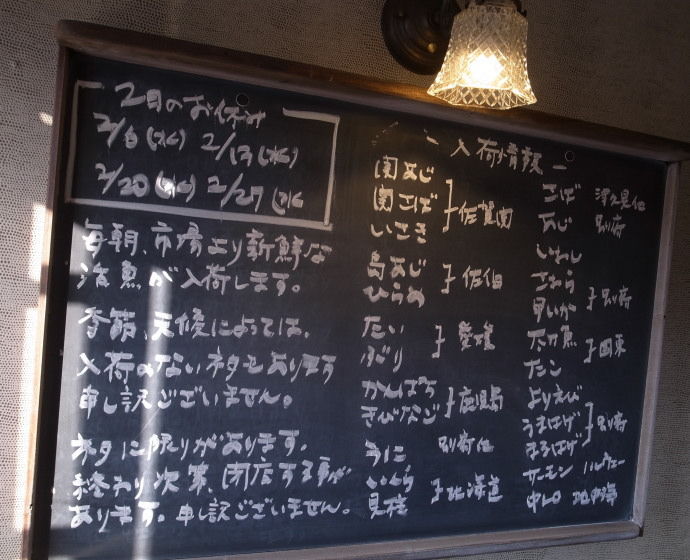 2月のお休み
2/6(水) 2/13(水)
2/20(水) 2/27(水
毎朝、市場より新鮮な
活魚が入荷します。
季節、天候によっては、
入荷のないネタもあります
申し訳ございません。
ネタに限りがあります。
終わり次第、閉店する事が
あります。申し訳ございません。
- 入荷情報 -
関あじ
関さば
いさき
佐賀関
島あじ
ひらめ
佐伯
たい
ぶり
愛媛
かんぱち
きびなご
鹿児島
うに 別府他
いくら
貝柱
北海道
さば 津久見他
あじ 別府
いわし
さわら
甲いか
別府
太刀魚
たこ
国東
よりえび
うまはげ
まるはげ
別府
サーモン ノルウェー
中トロ 地中海